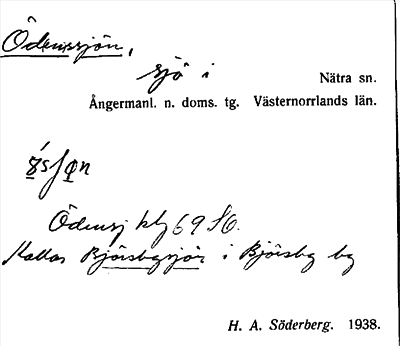 Ödenssjön,
sjö i
Nätra sn.
Ångermanl. n. doms. tg. Västernorrlands län.
Ödensj kbl 69 SO.
Kallas Björsbysjön i Björsby by
H. A. Söderberg. 1938.